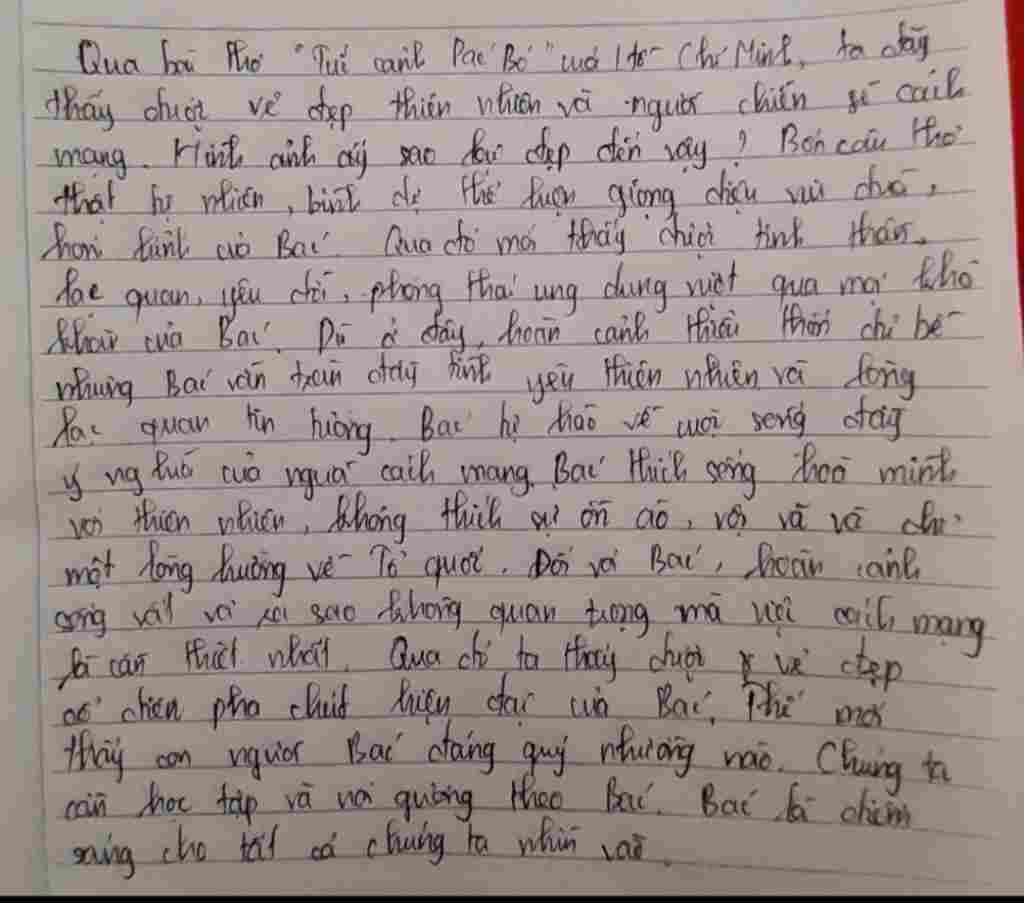 Qua bài thơ "Tức cảnh Pác Bó" của Hồ Chí Minh, ta đây
thấy được vẻ đẹp thiên nhiên và người chiến sĩ cách
mạng. Hình ảnh ấy sao lại đẹp đến vậy? Bốn câu thơ
thật tự nhiên, bình dị thể hiện giọng điệu vui đùa,
hóm hỉnh của Bác. Qua đó mới thấy được tinh thần,
lạc quan, yêu đời, phong thái ung dung vượt qua mọi khó
khăn của Bác. Dù ở đây, hoàn cảnh thiếu thốn chỉ bé
nhưng Bác vẫn tràn đầy tình yêu thiên nhiên và lòng
lạc quan tin tưởng. Bác tự hào về cuộc sống đầy
ý nghĩa của người cách mạng. Bác thích sống hoà mình
với thiên nhiên, không thích sự ồn ào, vội vã và chỉ
một lòng hướng về Tổ quốc. Đối với Bác, hoàn cảnh
sống vất vả ra sao không quan trọng mà việc cách mạng
là cần thiết nhất. Qua đó ta thấy được vẻ đẹp
cổ điển pha chút hiện đại của Bác. Thế mới
thấy con người Bác đáng quý nhường nào. Chúng ta
cần học tập và noi gương theo Bác. Bác là điểm
sáng cho tất cả chúng ta nhìn vào.